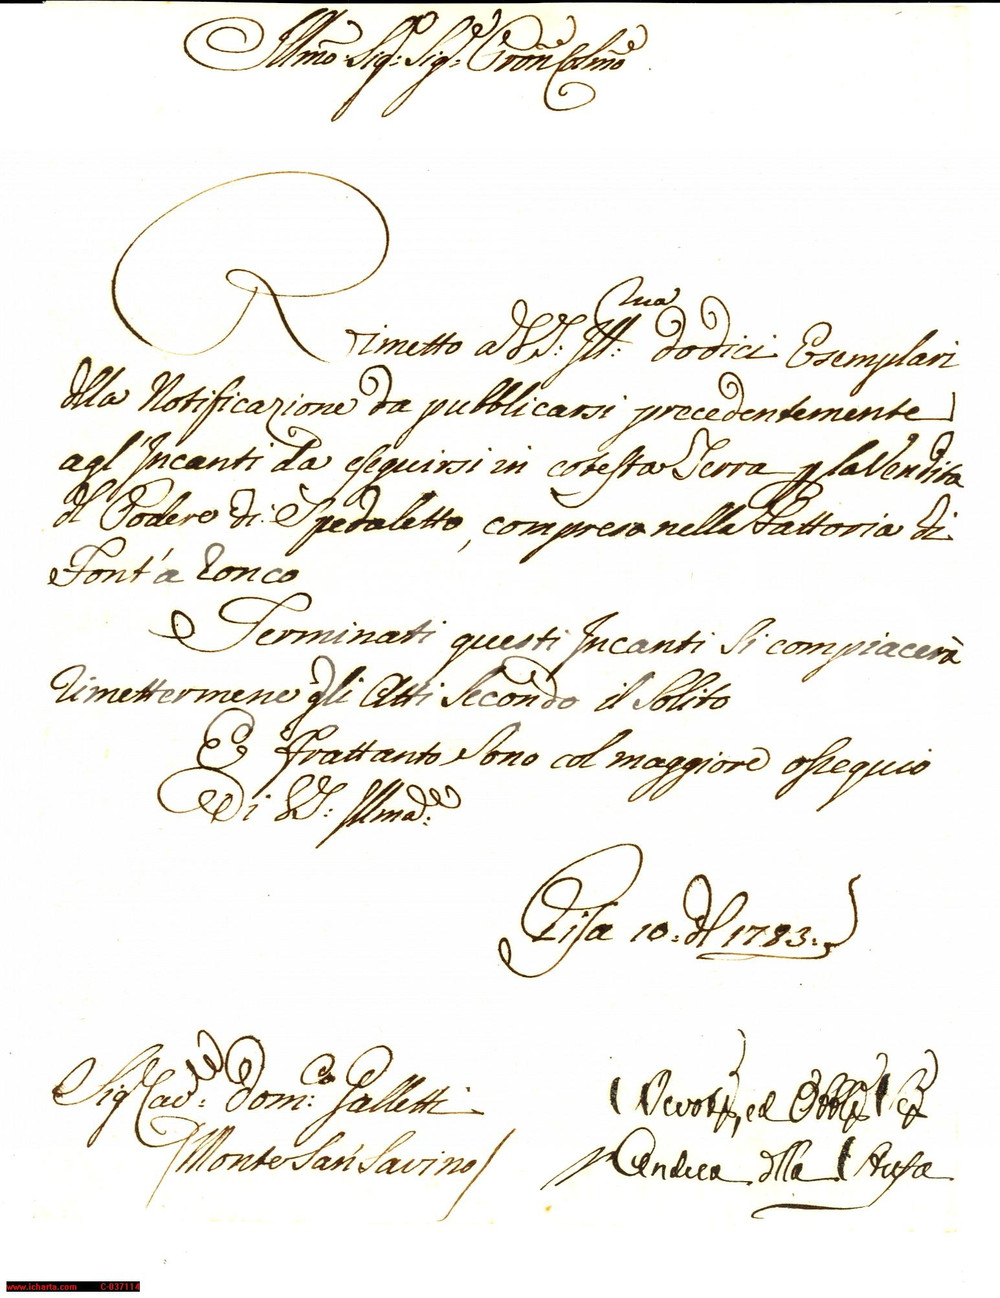 Illmo: Sig:re Sig:re Pron: Colmo
Rimetto a VS: Ill:ma dodici Esemplari
della Notificazione da pubblicarsi precedentemente
agl'Incanti da eseguirsi in cotesta Terra p la Vendita
del Podere di Spedaletto, compreso nella Fattoria di
Font'a Ronco
Terminati questi Incanti si compiacerà
rimettermene gli Atti secondo il solito
E frattanto sono col maggiore ossequio
Di VS: Illma:
Pisa 10: del 1783:
Sig Cav:re Dom:co Galletti
Monte San Savino
Devot, ed Obbl
Andrea della
www.icharta.com C-037114